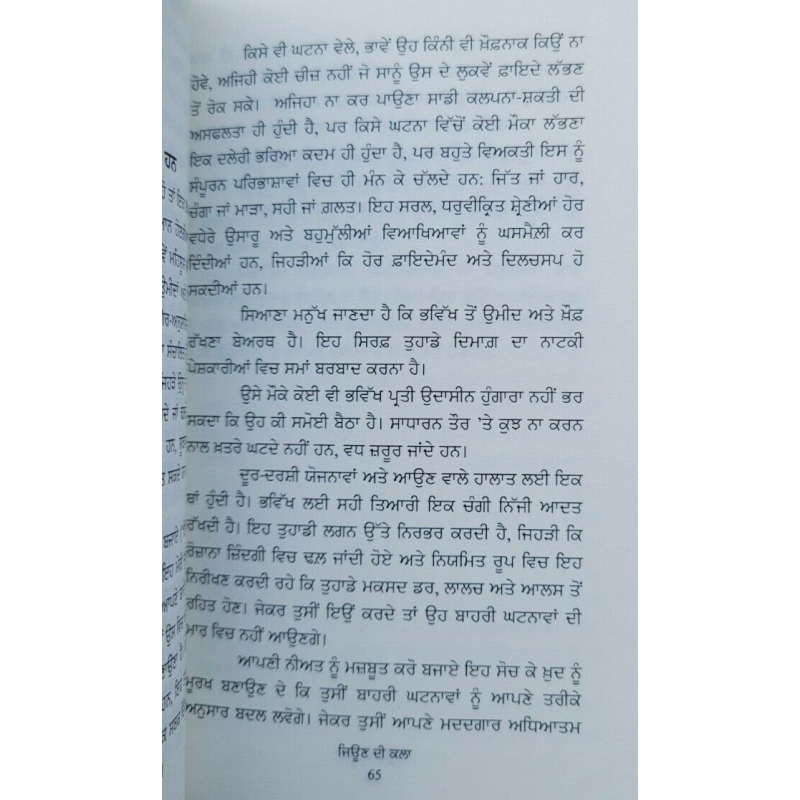 ਕਿਸੇ ਵੀ ਘਟਨਾ ਵੇਲੇ, ਭਾਵੇਂ ਉਹ ਕਿੰਨੀ ਵੀ ਖ਼ੌਫ਼ਨਾਕ ਕਿਉਂ ਨਾ
ਹੋਵੇ, ਅਜਿਹੀ ਕੋਈ ਚੀਜ਼ ਨਹੀਂ ਜੋ ਸਾਨੂੰ ਉਸ ਦੇ ਲੁਕਵੇਂ ਫ਼ਾਇਦੇ ਲੱਭਣ
ਤੋਂ ਰੋਕ ਸਕੇ। ਅਜਿਹਾ ਨਾ ਕਰ ਪਾਉਣਾ ਸਾਡੀ ਕਲਪਨਾ-ਸ਼ਕਤੀ ਦੀ
ਅਸਫਲਤਾ ਹੀ ਹੁੰਦੀ ਹੈ, ਪਰ ਕਿਸੇ ਘਟਨਾ ਵਿੱਚੋਂ ਕੋਈ ਮੌਕਾ ਲੱਭਣਾ
ਇਕ ਦਲੇਰੀ ਭਰਿਆ ਕਦਮ ਹੀ ਹੁੰਦਾ ਹੈ, ਪਰ ਬਹੁਤੇ ਵਿਅਕਤੀ ਇਸ ਨੂੰ
ਸੰਪੂਰਨ ਪਰਿਭਾਸ਼ਾਵਾਂ ਵਿਚ ਹੀ ਮੰਨ ਕੇ ਚੱਲਦੇ ਹਨ: ਜਿੱਤ ਜਾਂ ਹਾਰ,
ਚੰਗਾ ਜਾਂ ਮਾੜਾ, ਸਹੀ ਜਾਂ ਗ਼ਲਤ। ਇਹ ਸਰਲ, ਧਰੁਵੀਕ੍ਰਿਤ ਸ਼੍ਰੇਣੀਆਂ ਹੋਰ
ਵਧੇਰੇ ਉਸਾਰੂ ਅਤੇ ਬਹੁਮੁੱਲੀਆਂ ਵਿਆਖਿਆਵਾਂ ਨੂੰ ਘਸਮੈਲੀ ਕਰ
ਦਿੰਦੀਆਂ ਹਨ, ਜਿਹੜੀਆਂ ਕਿ ਹੋਰ ਫ਼ਾਇਦੇਮੰਦ ਅਤੇ ਦਿਲਚਸਪ ਹੋ
ਸਕਦੀਆਂ ਹਨ।
ਸਿਆਣਾ ਮਨੁੱਖ ਜਾਣਦਾ ਹੈ ਕਿ ਭਵਿੱਖ ਤੋਂ ਉਮੀਦ ਅਤੇ ਖ਼ੌਫ਼
ਰੱਖਣਾ ਬੇਅਰਥ ਹੈ। ਇਹ ਸਿਰਫ਼ ਤੁਹਾਡੇ ਦਿਮਾਗ਼ ਦਾ ਨਾਟਕੀ
ਪੇਸ਼ਕਾਰੀਆਂ ਵਿਚ ਸਮਾਂ ਬਰਬਾਦ ਕਰਨਾ ਹੈ।
ਉਸੇ ਮੌਕੇ ਕੋਈ ਵੀ ਭਵਿੱਖ ਪ੍ਰਤੀ ਉਦਾਸੀਨ ਹੁੰਗਾਰਾ ਨਹੀਂ ਭਰ
ਸਕਦਾ ਕਿ ਉਹ ਕੀ ਸਮੋਈ ਬੈਠਾ ਹੈ। ਸਾਧਾਰਨ ਤੌਰ 'ਤੇ ਕੁਝ ਨਾ ਕਰਨ
ਨਾਲ ਖ਼ਤਰੇ ਘਟਦੇ ਨਹੀਂ ਹਨ, ਵਧ ਜ਼ਰੂਰ ਜਾਂਦੇ ਹਨ।
ਦੂਰ-ਦਰਸ਼ੀ ਯੋਜਨਾਵਾਂ ਅਤੇ ਆਉਣ ਵਾਲੇ ਹਾਲਾਤ ਲਈ ਇਕ
ਥਾਂ ਹੁੰਦੀ ਹੈ। ਭਵਿੱਖ ਲਈ ਸਹੀ ਤਿਆਰੀ ਇਕ ਚੰਗੀ ਨਿੱਜੀ ਆਦਤ
ਰੱਖਦੀ ਹੈ। ਇਹ ਤੁਹਾਡੀ ਲਗਨ ਉੱਤੇ ਨਿਰਭਰ ਕਰਦੀ ਹੈ, ਜਿਹੜੀ ਕਿ
ਰੋਜ਼ਾਨਾ ਜ਼ਿੰਦਗੀ ਵਿਚ ਢਲ਼ ਜਾਂਦੀ ਹੋਏ ਅਤੇ ਨਿਯਮਿਤ ਰੂਪ ਵਿਚ ਇਹ
ਨਿਰੀਖਣ ਕਰਦੀ ਰਹੇ ਕਿ ਤੁਹਾਡੇ ਮਕਸਦ ਡਰ, ਲਾਲਚ ਅਤੇ ਆਲਸ ਤੋਂ
ਰਹਿਤ ਹੋਣ। ਜੇਕਰ ਤੁਸੀਂ ਇਉਂ ਕਰਦੇ ਤਾਂ ਉਹ ਬਾਹਰੀ ਘਟਨਾਵਾਂ ਦੀ
ਮਾਰ ਵਿਚ ਨਹੀਂ ਆਉਣਗੇ।
ਆਪਣੀ ਨੀਅਤ ਨੂੰ ਮਜ਼ਬੂਤ ਕਰੋ ਬਜਾਏ ਇਹ ਸੋਚ ਕੇ ਖ਼ੁਦ ਨੂੰ
ਮੂਰਖ ਬਣਾਉਣ ਦੇ ਕਿ ਤੁਸੀਂ ਬਾਹਰੀ ਘਟਨਾਵਾਂ ਨੂੰ ਆਪਣੇ ਤਰੀਕੇ
ਅਨੁਸਾਰ ਬਦਲ ਲਵੋਗੇ। ਜੇਕਰ ਤੁਸੀਂ ਆਪਣੇ ਮਦਦਗਾਰ ਅਧਿਆਤਮ
ਜਿਊਣ ਦੀ ਕਲਾ
65